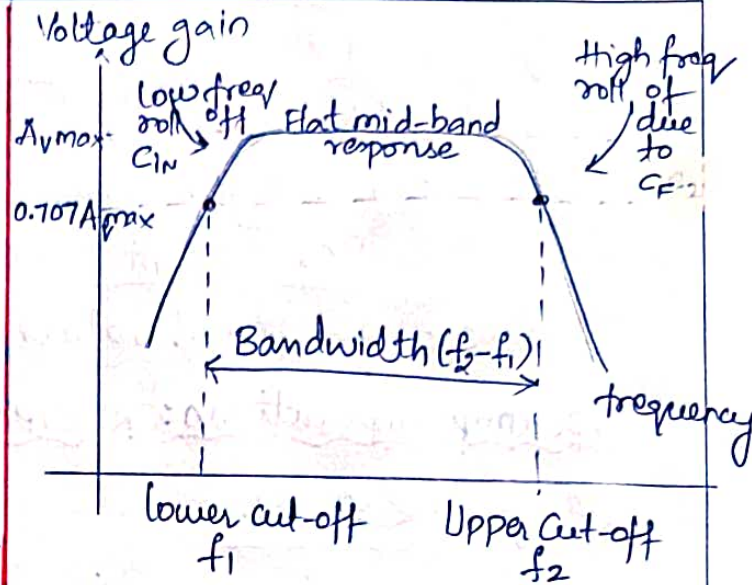 Voltage gain
Low freq
roll off
CIN
Avmax
Flat mid-band
response
High freq
roll of
due
to
CF
0.707Avmax
Bandwidth (f2-f1)
frequency
lower cut-off
f1
Upper Cut-off
f2